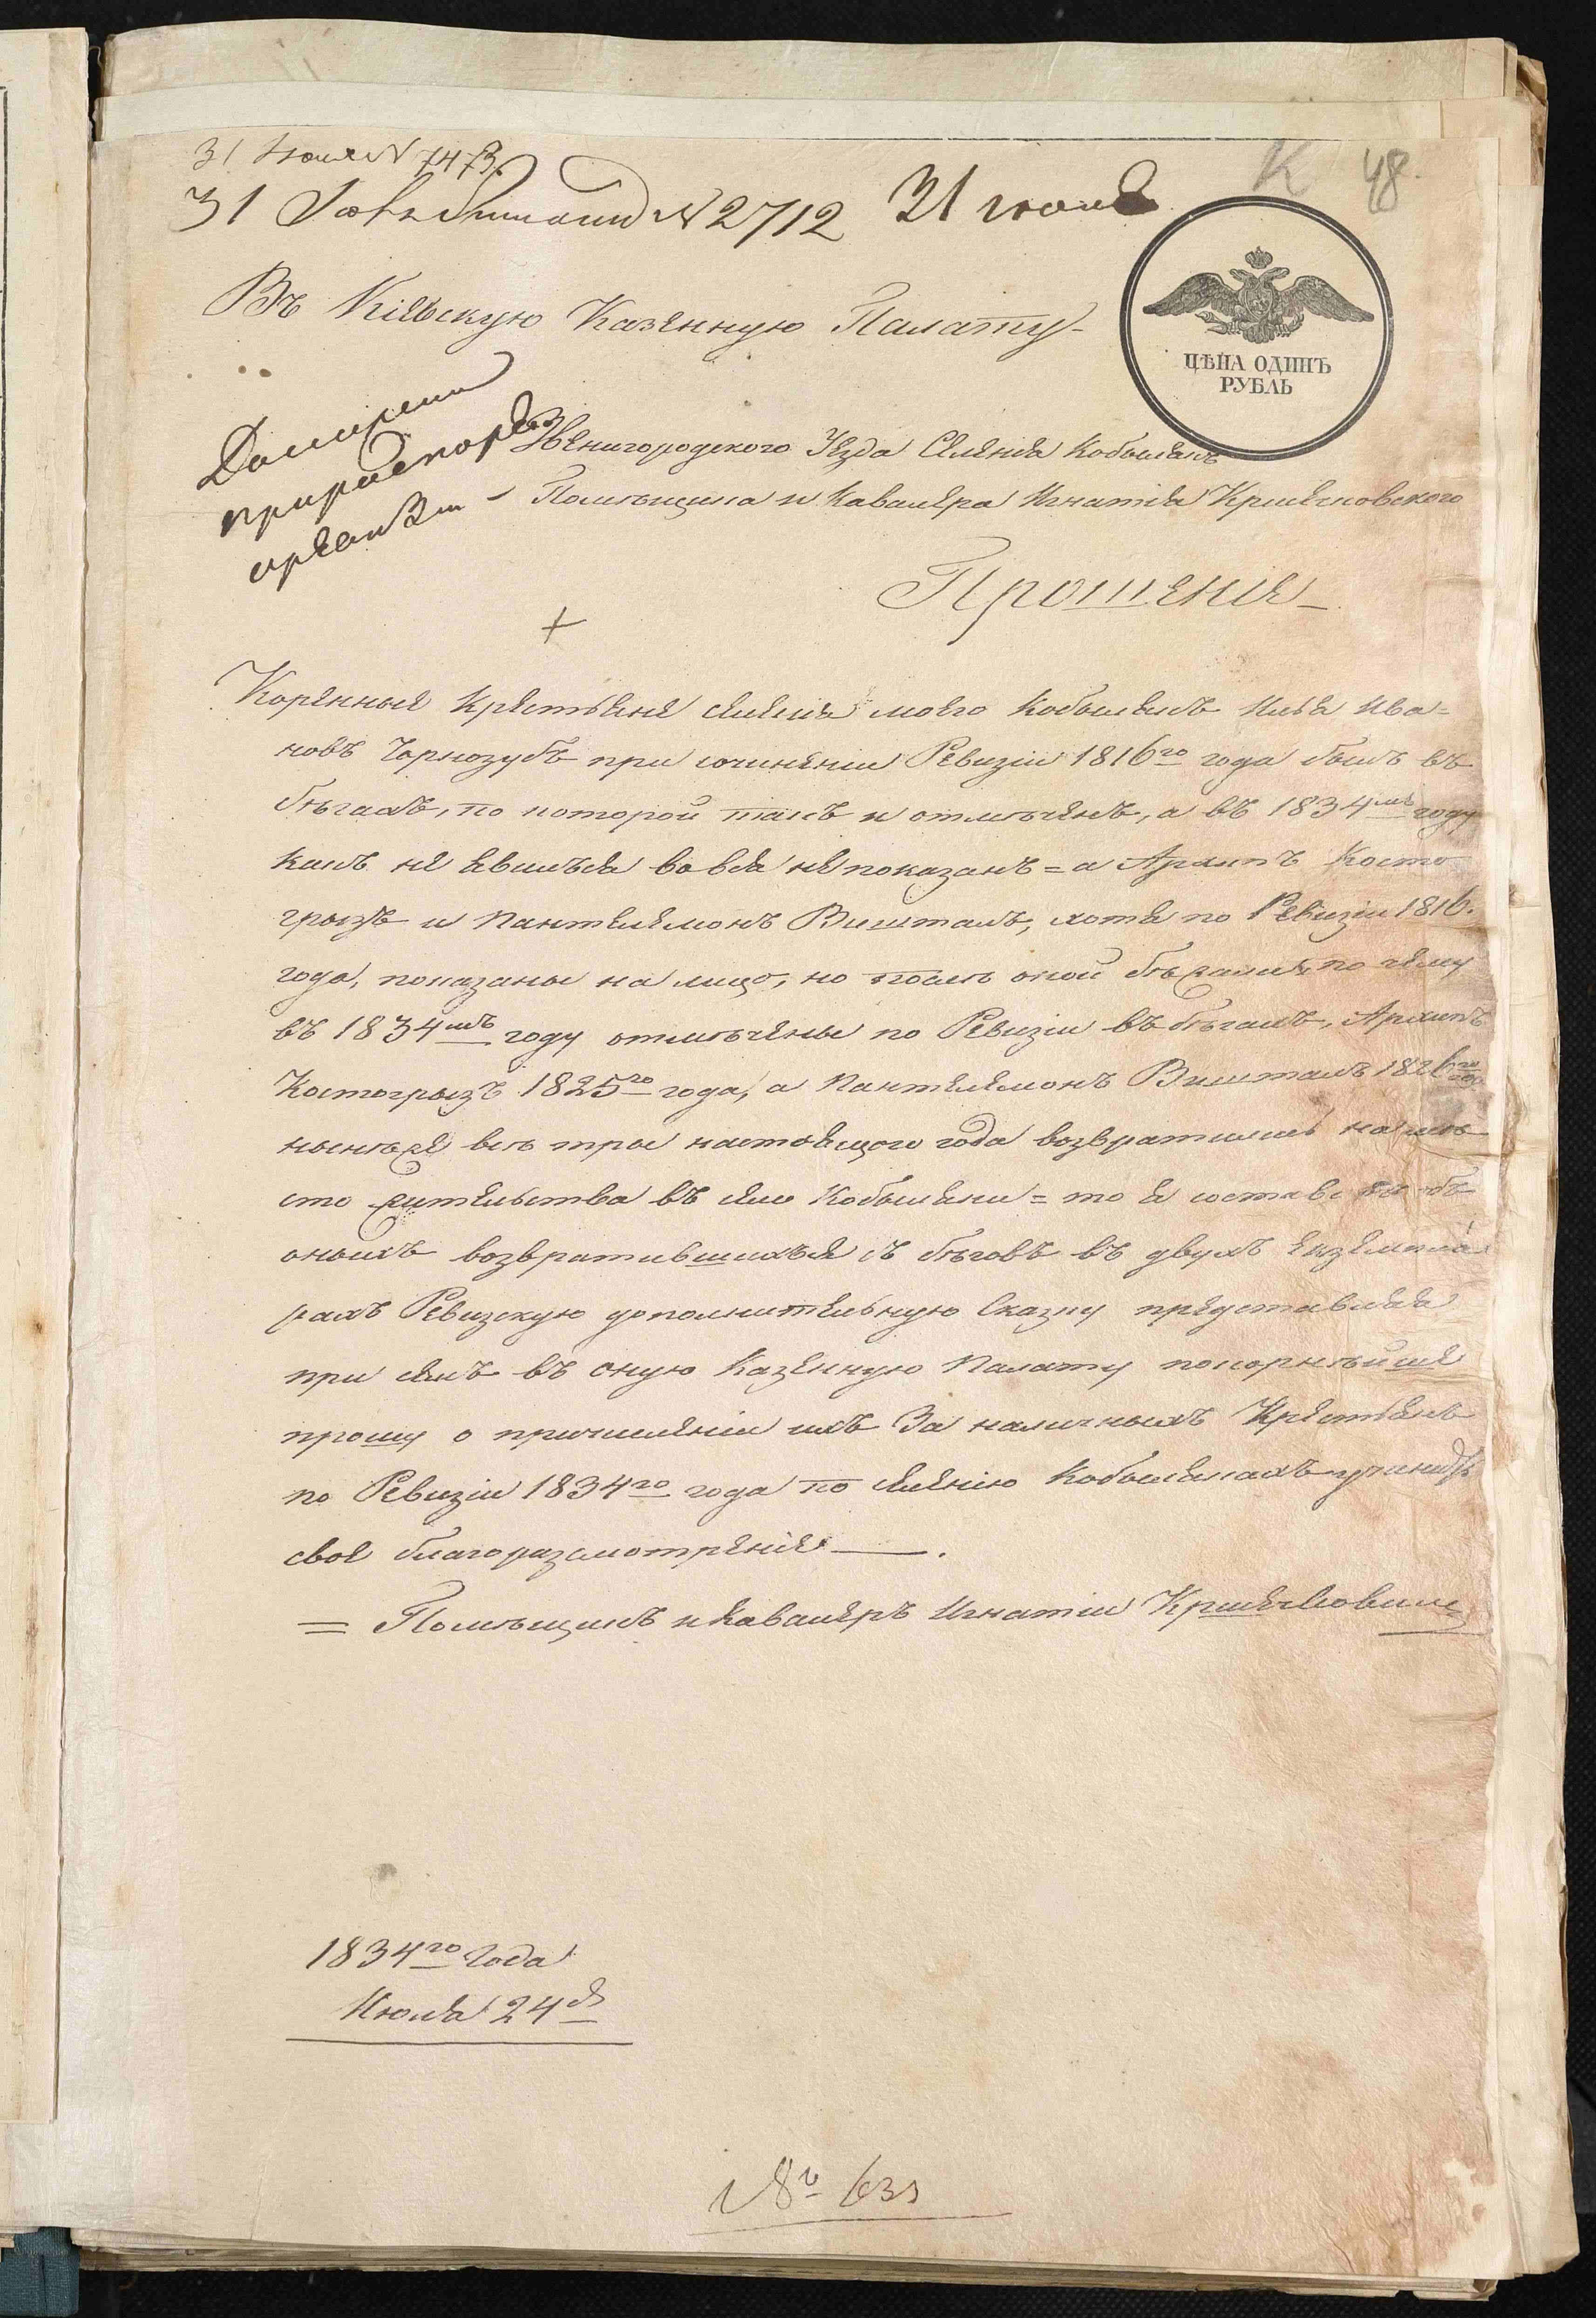 31 Іюля N 7473.
31 Іюля N 2712 31 июля
К 48.
Въ Кіевскую Казенную Палату
ЦѢНА ОДИНЪ
РУБЛЬ
Звенигородского Уезда Селенія Кобылякъ
Помѣщика и Кавалера Игнатія Кршечковского
Прошеніе
Коренные Крестьяне селенія моего Кобылякъ Илья Ива=
новъ Чорнозубъ при сочиненіи Ревизіи 1816го года былъ въ
бѣгахъ, по которой такъ и отмѣченъ, а въ 1834мъ году
какъ не явился вовся не показанъ = а Архипъ Косто
грызъ и Пантелемонъ Вишталь, хотя по Ревизіи 1816.
года, показаны на лицо, но послѣ оной бѣжали, по чему
въ 1834мъ году отмѣчены по Ревизіи въ бѣгахъ, Архипъ
Костогрызъ 1825го года, а Пантелемонъ Вишталь 1826го
нынѣже всѣ трое настоящого года возвратились на мѣ
сто жительства въ село Кобыляки = то я составя объ
оныхъ возвратившихся съ бѣговъ въ двухъ екземпля
рахъ Ревизскую дополнительную Сказку представляя
при семъ въ оную Казенную Палату покорнѣйше
прошу о причисленіи ихъ За наличныхъ Крестьянъ
по Ревизіи 1834го года по селенію Кобылякахъ учинить
свое благоразсмотреніе.
= Помѣщикъ и Кавалеръ Игнатій Кршечковскій
1834го Года
Июля 24 д
№ 631